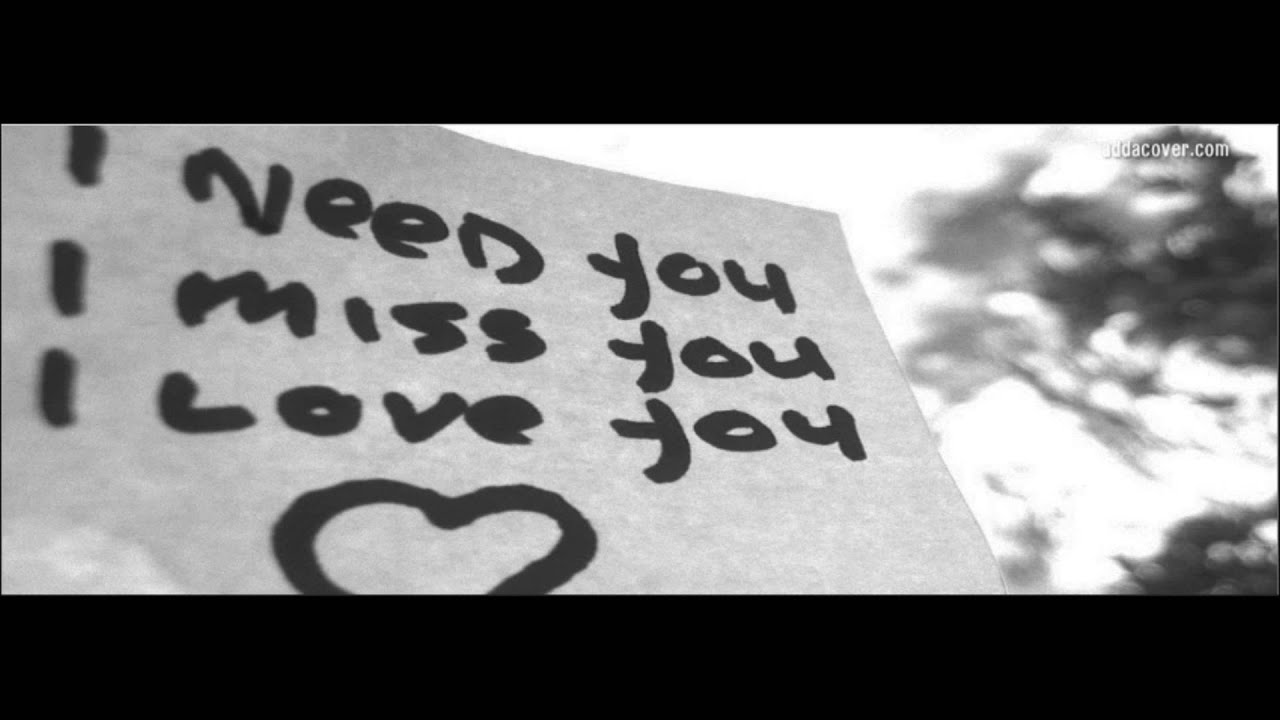 addacover.com
I NeeD you
I miss you
I Love you